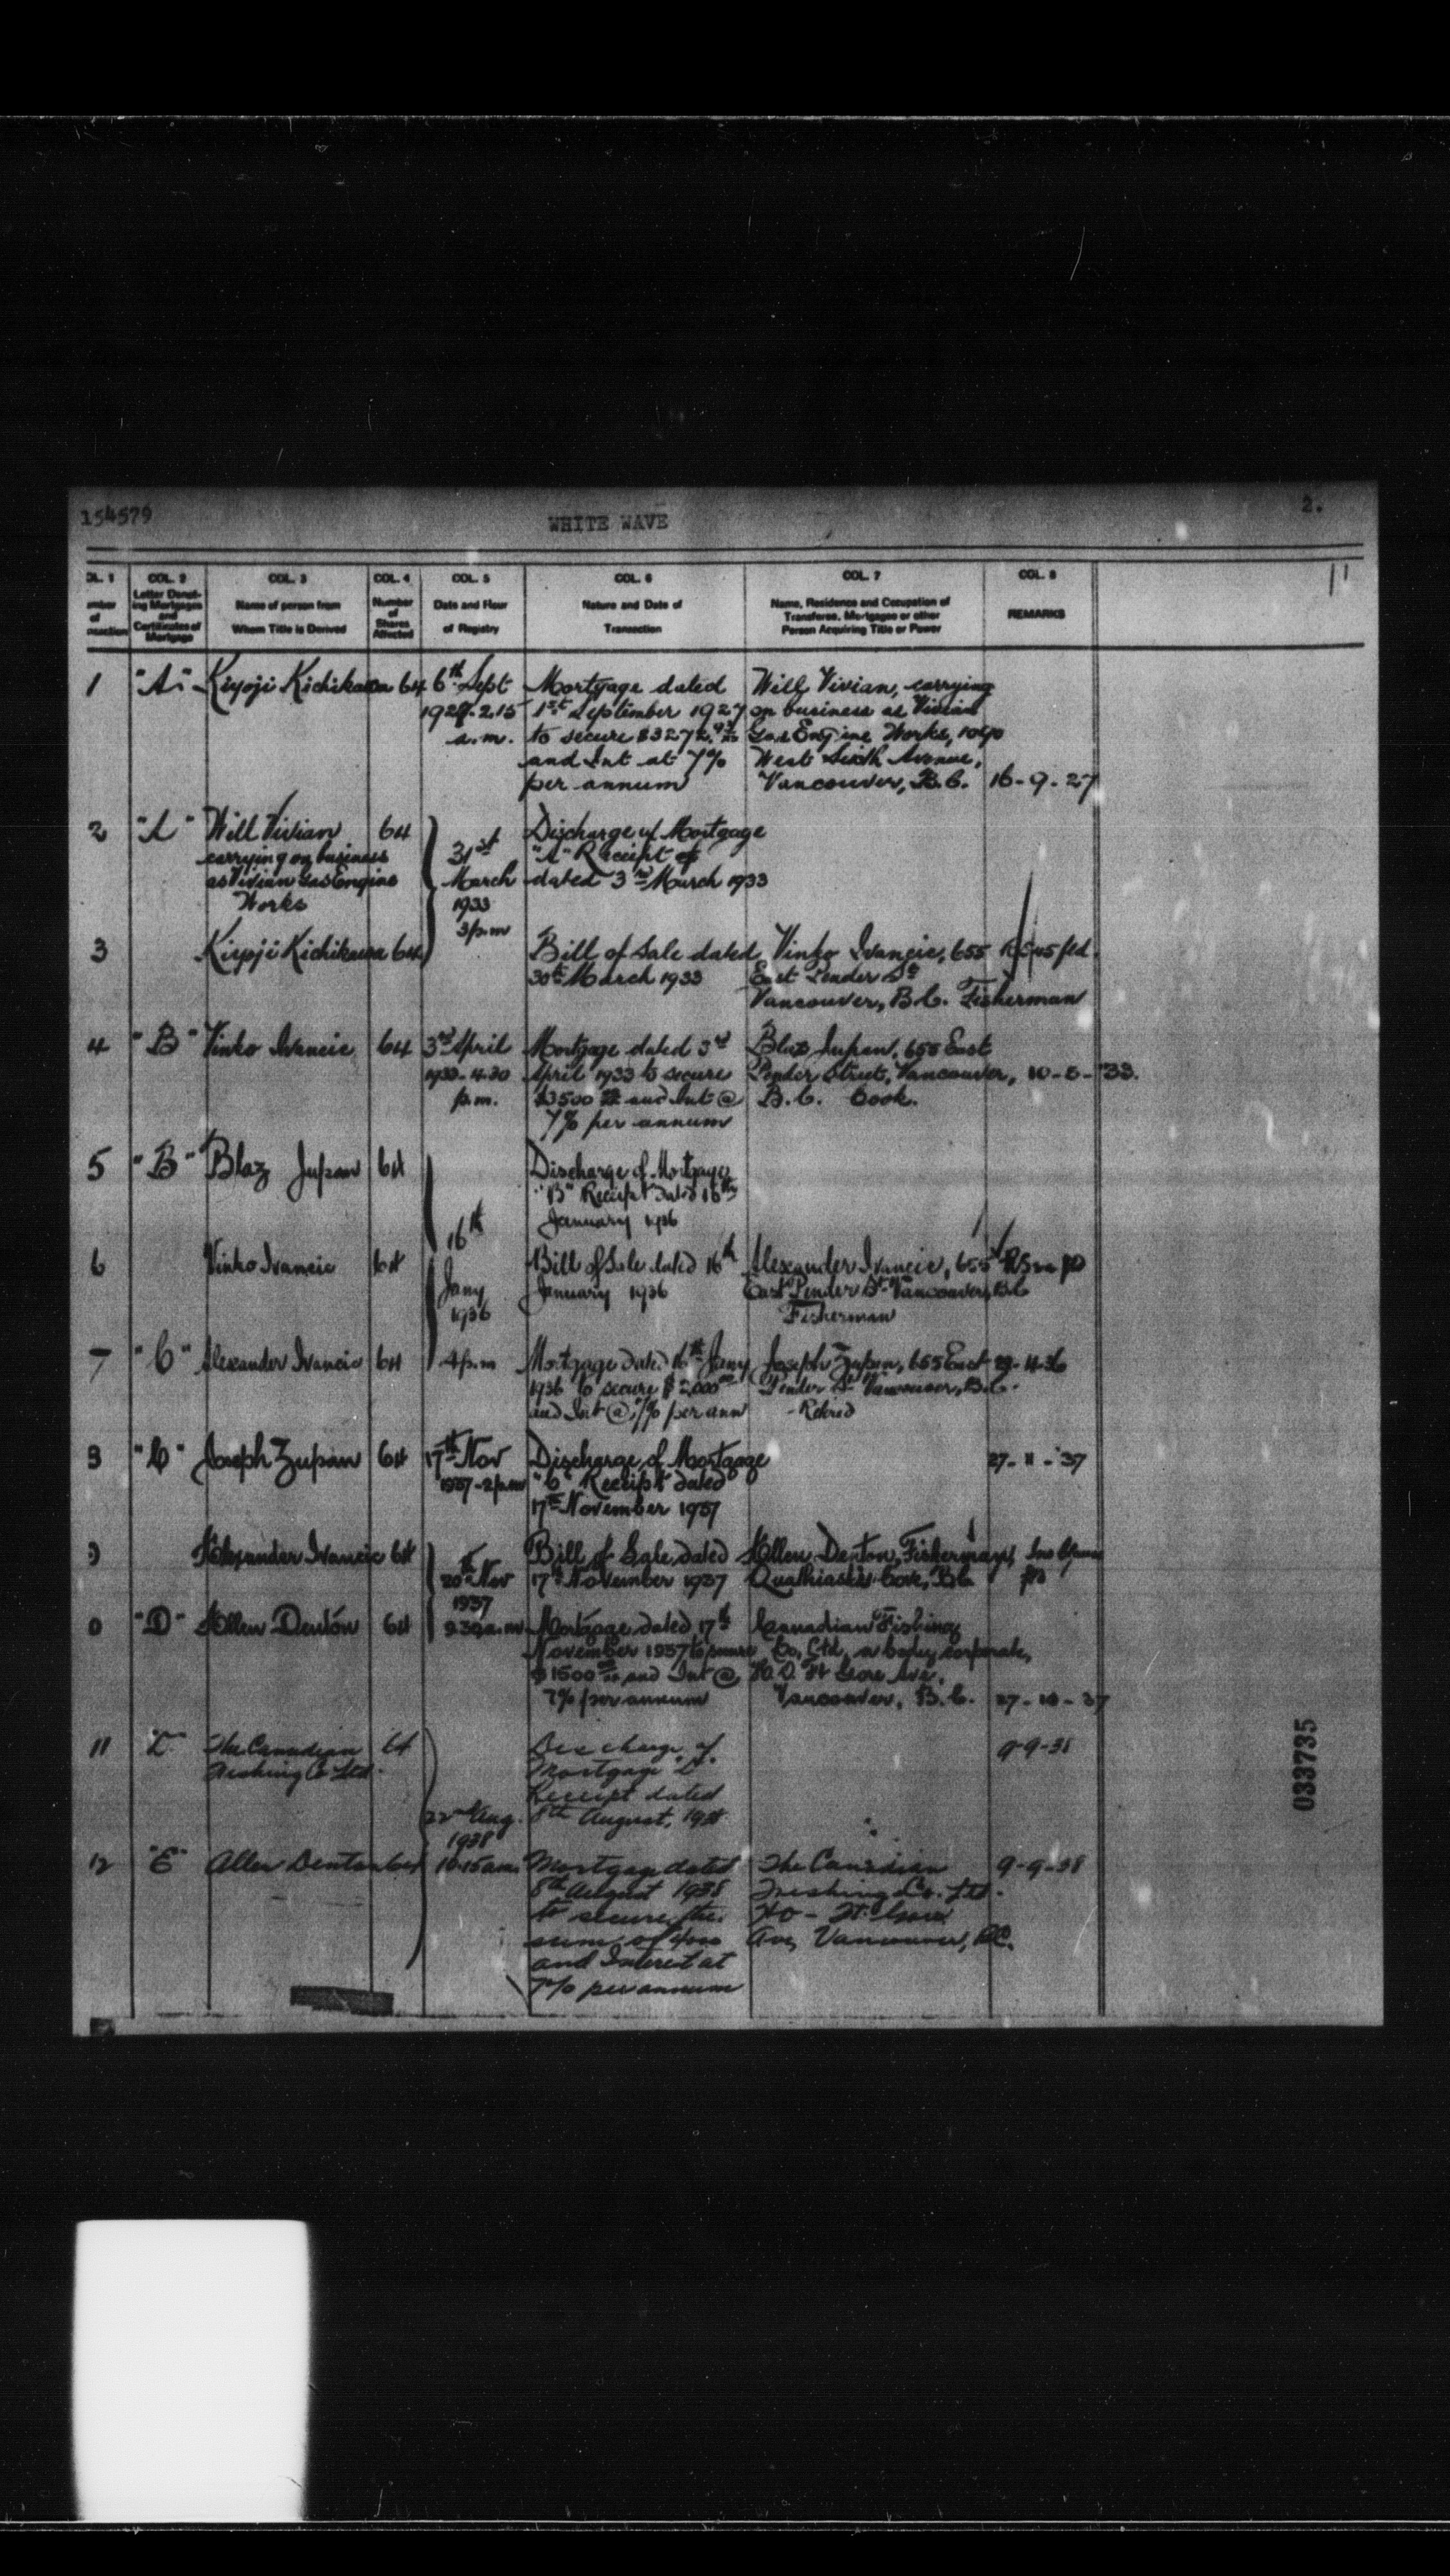 154579
WHITE WAVE
2.
COL. 1
COL. 2
COL. 3
COL. 4
COL. 5
COL. 6
COL. 7
COL. 8
Letter Denot-
ing Mortgages
and
Certificates of
Mortgage
Name of person from
Whom Title is Derived
Number
of
Shares
Affected
Date and Hour
of Registry
Nature and Date of
Transaction
Name, Residence and Occupation of
Transferee, Mortgagee or other
Person Acquiring Title or Power
REMARKS
1 "A" Kiyoji Kichikawa 64 6th Sept Mortgage dated Will Vivian, carrying
1927-2.15 1st September 1927 on business as Vivian
to secure Gas Engine Works,
and Int at 7% West Sixth Avenue,
per annum Vancouver, B.C. 16-9-27
2 "A" Will Vivian 64 Discharge of Mortgage
carrying on business 31st "A" Receipt
as Vivian Gas Engine March dated 3rd March 1933
Works 1933
3 p.m
3 Kiyoji Kichikawa 64 Bill of Sale dated Vinko Ivancic, 655
30th March 1933 East Pender St
Vancouver, B.C. Fisherman
4 "B" Vinko Ivancic 64 3rd April Mortgage dated 3rd Blaz Jupan, 655 East
1933-4.30 April 1933 to secure Pender Street, Vancouver, 10-5-'33.
p.m. $3500 and Int @ B.C. Cook.
7% per annum
5 "B" Blaz Jupan 64 Discharge of Mortgage
"B" Receipt dated 16th
January 1936
16th
6 Vinko Ivancic 64 Bill of Sale dated 16th Alexander Ivancic, 655
Jany January 1936 East Pender St Vancouver, B.C
1936 Fisherman
7 "C" Alexander Ivancic 64 4 p.m Mortgage dated 16th Jany Joseph Zupan, 655 East
1936 to secure $2,000 Pender St Vancouver, B.C.
and Int @ 7% per ann - Retired
"C" Joseph Zupan 64 17th Nov Discharge of Mortgage 27-11-'37
1937-2 p.m "C" Receipt dated
17th November 1937
Alexander Ivancic 64 Bill of Sale dated Allen Denton, Fisherman,
20th Nov 17th November 1937 Quathiaski Cove, B.C.
1937
"D" Allen Denton 64 9.30 a.m Mortgage dated 17th Canadian Fishing
November 1937 to secure Co. Ltd, a body corporate,
$1500 and Int @ H.O. Ft Gore Ave.
7% per annum Vancouver, B.C.
11 "D" The Canadian 64 Discharge of 9-9-38
Fishing Co Ltd. Mortgage "D"
Receipt dated
22nd Aug. 8th August,
1938
12 "E" Allen Denton 64 10.15 a.m. Mortgage dated The Canadian 9-9-38
8th August 1938 Fishing Co. Ltd.
to secure the HO - Ft. Gore
sum of Ave, Vancouver, B.C.
and Interest at
7% per annum
033735